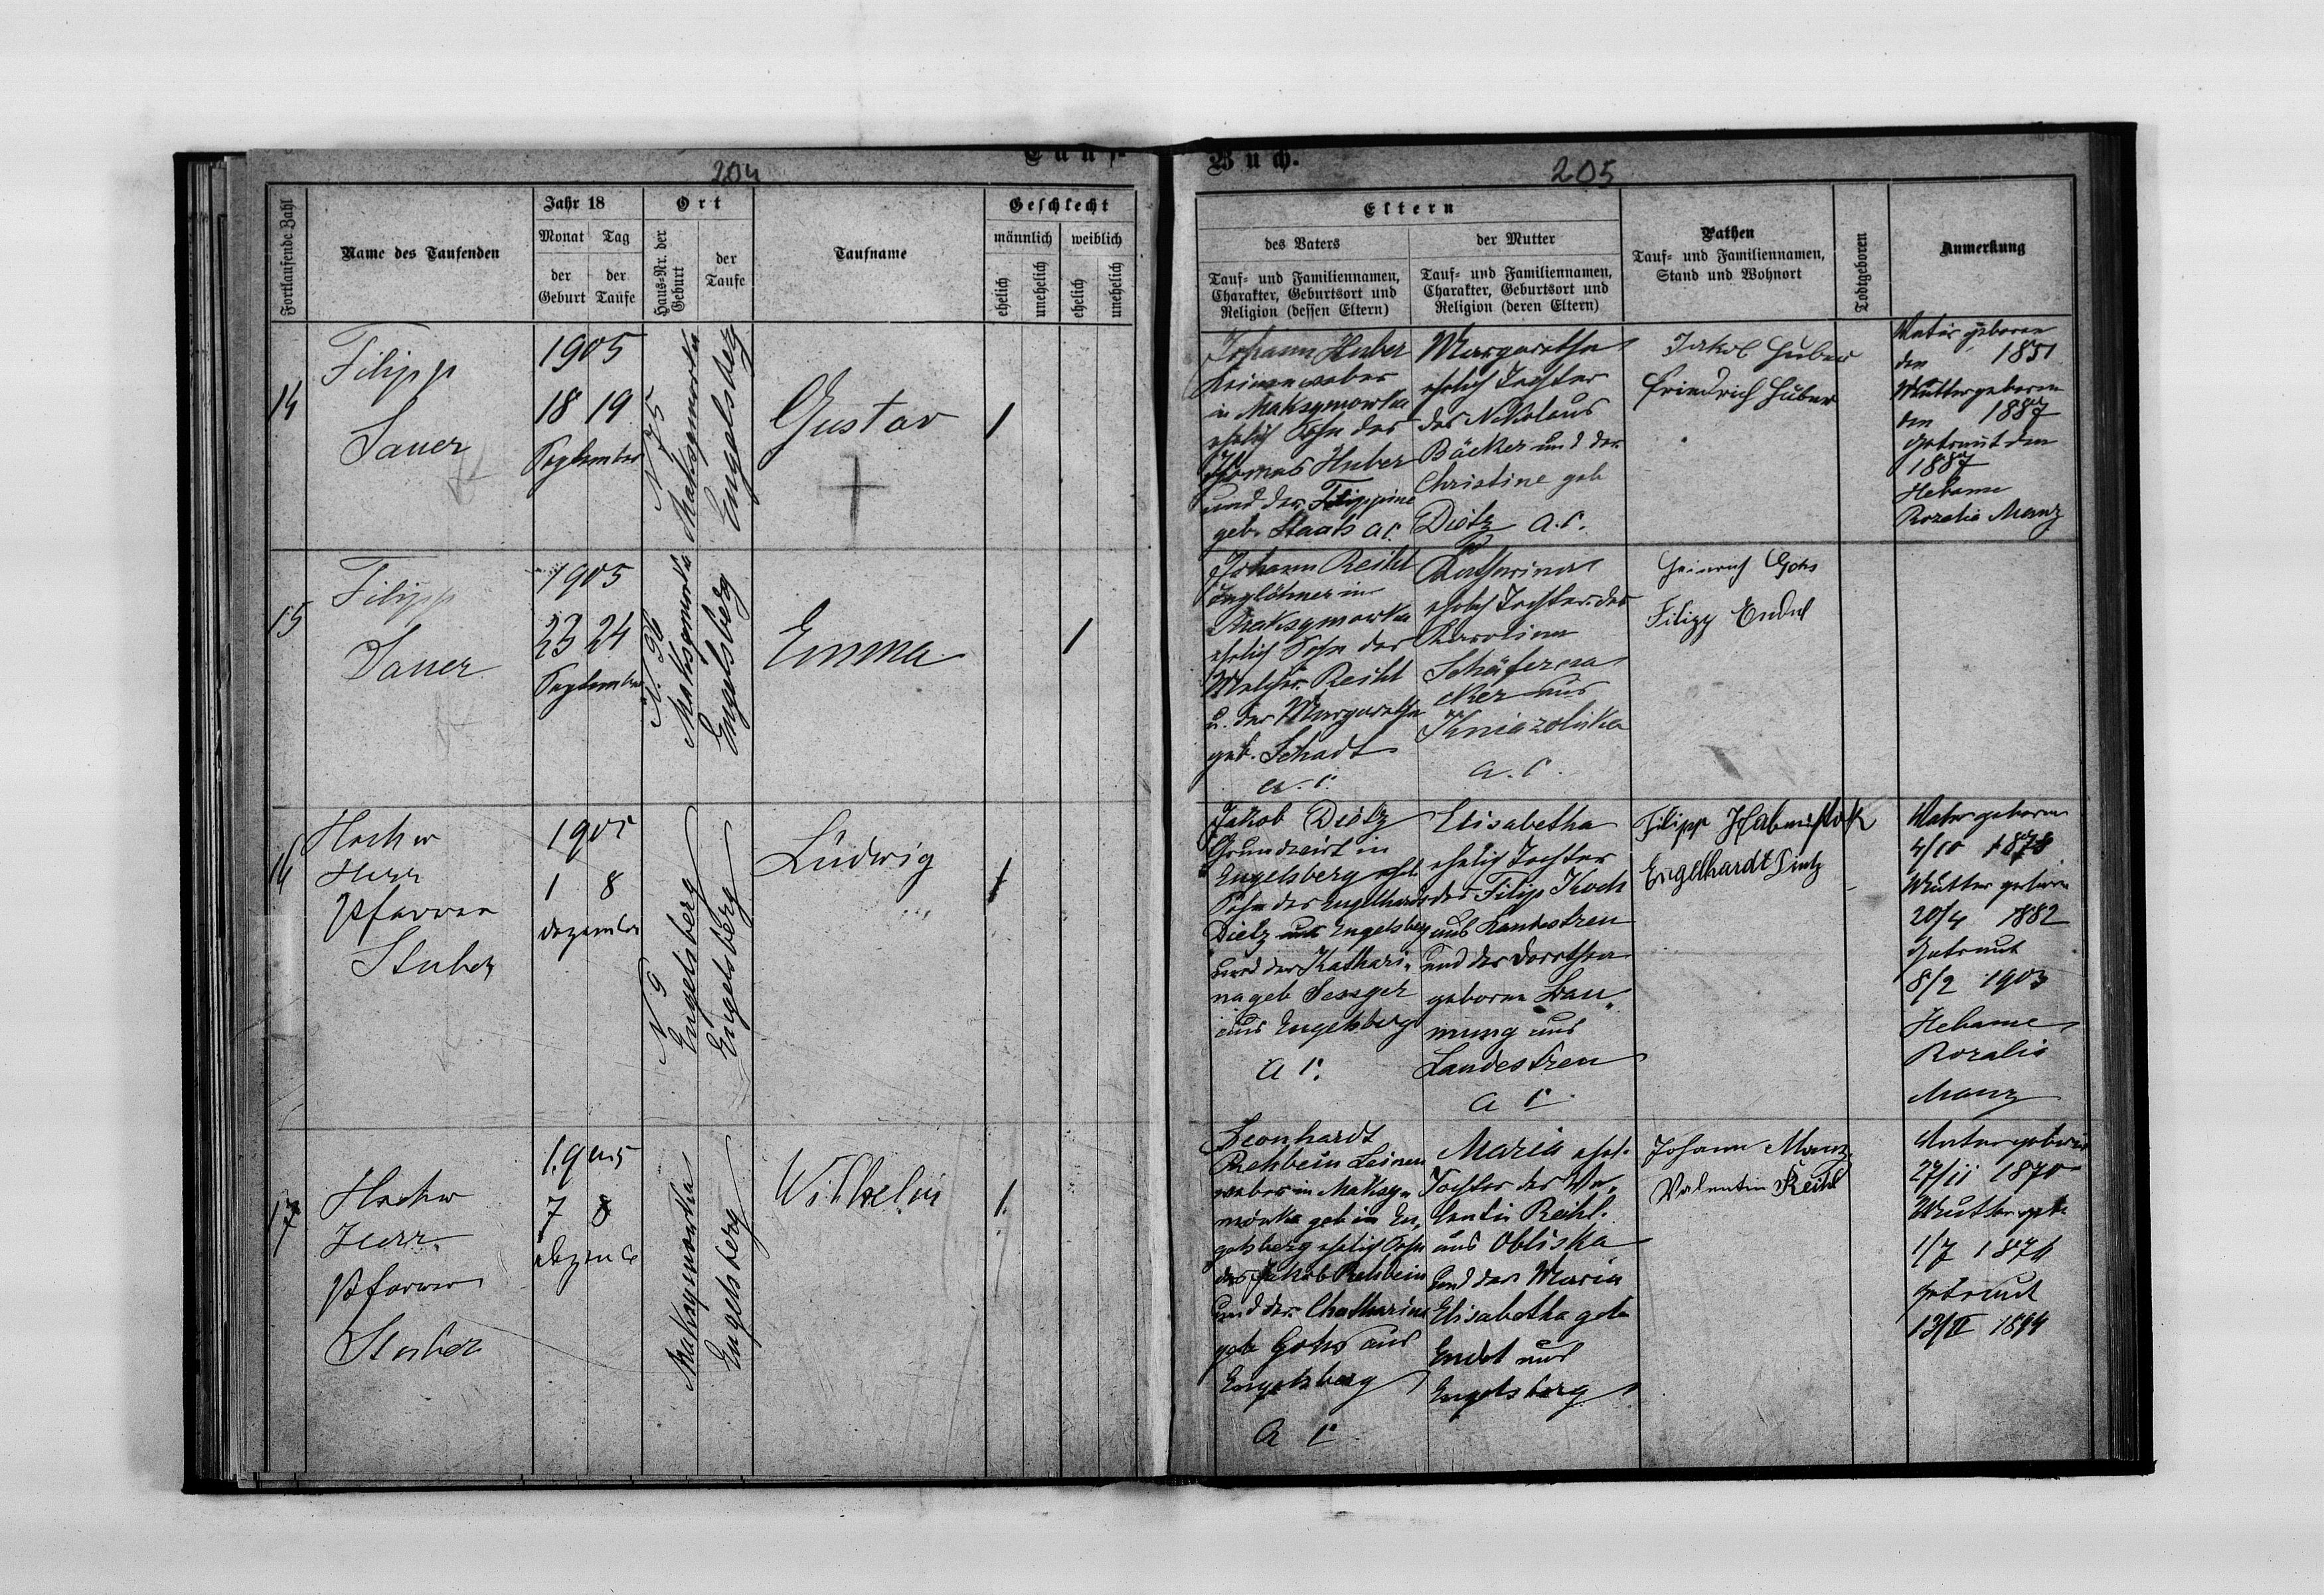 Tauf-
204
Fortlaufende Zahl
Name des Taufenden
Jahr 18
Monat
der
Geburt
Tag
der
Taufe
Ort
Haus-Nr. der
Geburt
der
Taufe
Taufname
Geschlecht
männlich
weiblich
ehelich
unehelich
ehelich
unehelich
14
Filipp
Sauer
1905
18 19
September
N 75
Maksymowka
Engelsberg
Gustav
1
15
Filipp
Sauer
1905
23 24
September
N. 96
Maksymowka
Engelsberg
Emma
1
16
Herr
Pfarrer
1905
1 8
Dezember
N 9
Engelsberg
Engelsberg
Ludwig
1
17
Herr
Pfarrer
1905
7 8
Maksymowka
Engelsberg
Wilhelm
1
Buch.
205
Eltern
des Vaters
Tauf- und Familiennamen,
Charakter, Geburtsort und
Religion (dessen Eltern)
der Mutter
Tauf- und Familiennamen,
Charakter, Geburtsort und
Religion (deren Eltern)
Pathen
Tauf- und Familiennamen,
Stand und Wohnort
Todtgeboren
Anmerkung
Johann Huber
Leinenweber
in Maksymowka
ehelich Sohn des
Thomas Huber
und der Filippine
geb. Staats a.c.
Margaretha
ehelich Tochter
des Nikolaus
Bäcker und der
Christine geb
Dietz a.c.
Jakob Huber
Friedrich Huber
Vater geboren
den 1851
Mutter geboren
den
getraut den
1887
Hebame
Rozalia Manz
Johann Reihl
Taglöhner in
Maksymowka
ehelich Sohn des
Reihl
u. der Margaretha
geb. Schadt
a. c.
Katharina
ehelich Tochter der
Karolina
aus
Kniazoluka
a. c.
Heinrich Gohs
Filipp Endel
Jakob Dietz
Grundwirt in
Engelsberg ehel
Sohn des Engelhardt
Dietz aus Engelsberg
und der Kathari-
na geb
aus Engelsberg
a c.
Elisabetha
ehelich Tochter
des Filip Koch
aus Landestreu
und der Dorothea
geborne Bau-
mung aus
Landestreu
a c.
Filipp
Engelhardt Dietz
Vater geboren
4/10 1878
Mutter geboren
20/4 1882
Getraut
8/2 1903
Hebame
Rozalia
Manz
Leonhardt
Rehbein Leinen
weber in Maksy-
mówka geb in En-
gelsberg ehelich Sohn
des Jakob Rehbein
und der Chatharina
geb Gohs aus
Engelsberg
a c.
Maria ehel.
Tochter des Va-
lentin Reihl
aus Obliska
und der Maria
Elisabetha geb
Endel aus
Engelsberg
Johann Manz
Valentin Reihl
Vater geboren
27/11 1870
Mutter geb
1/7
Getraut